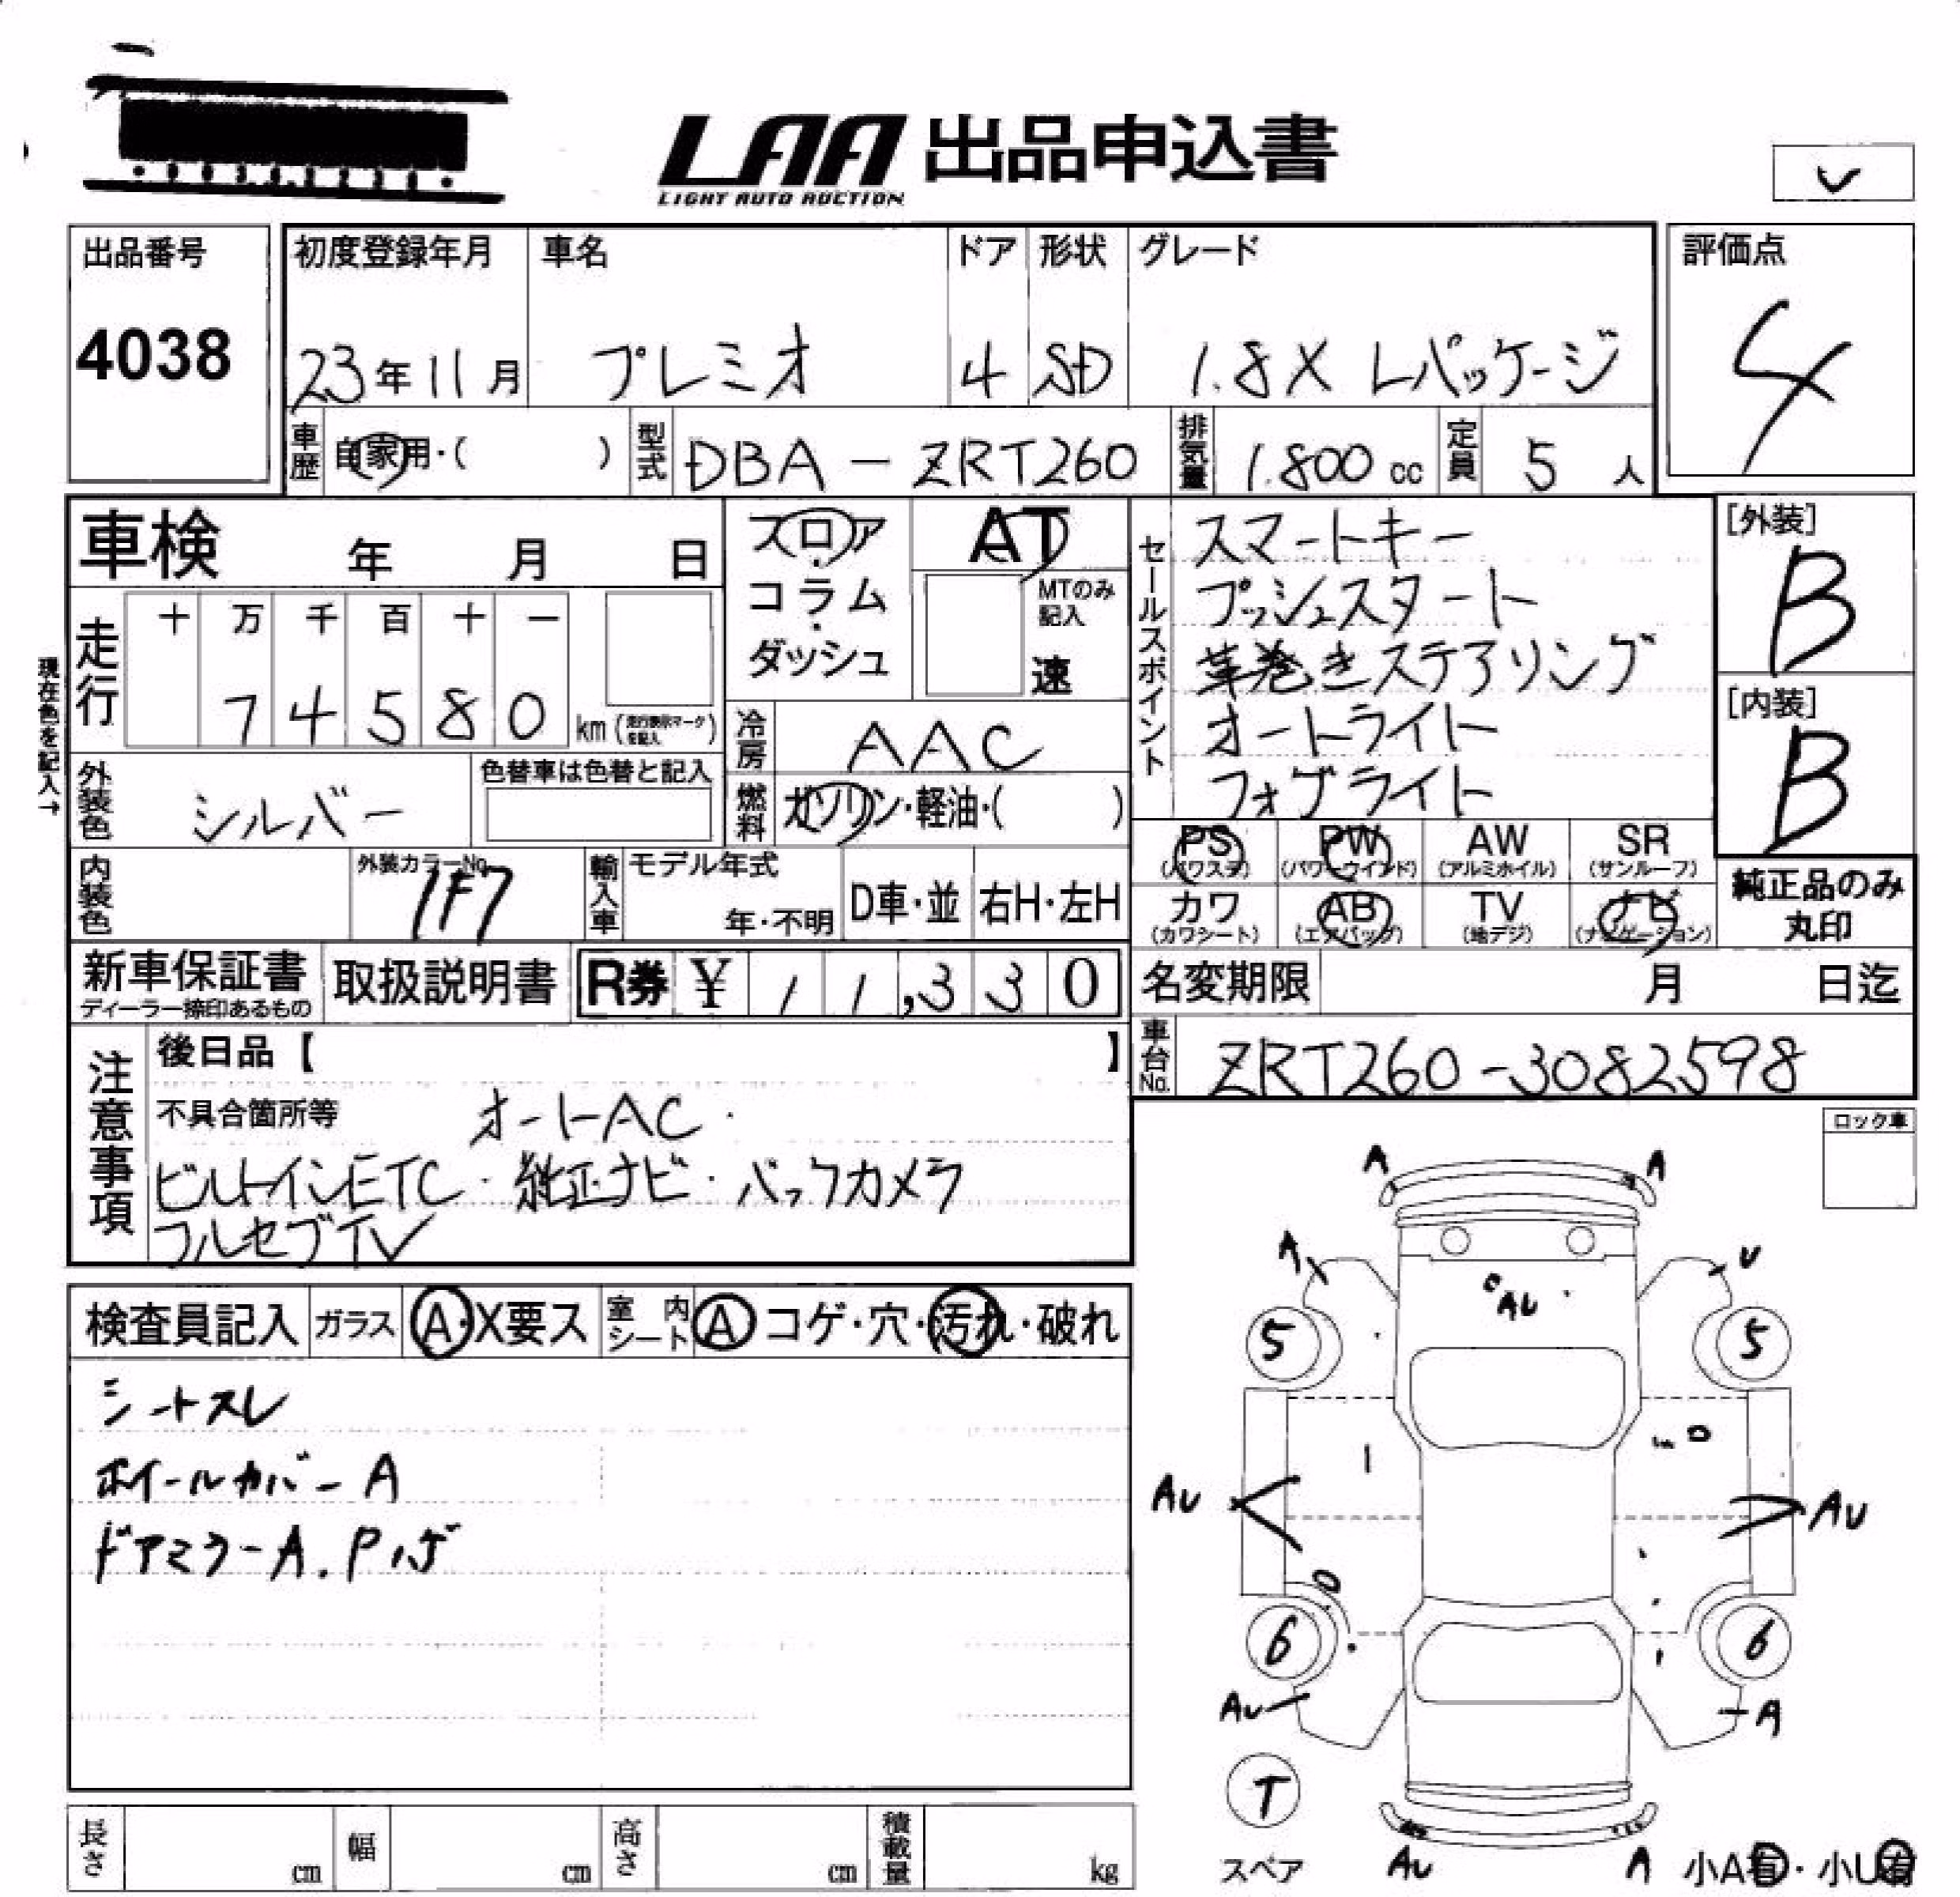 LAA 出品申込書
LIGHT AUTO AUCTION
出品番号
4038
初度登録年月
23年11月
車名
プレミオ
ドア
4
形状
SD
グレード
1.8X Lパッケージ
評価点
4
車歴
自家用・( )
型式
DBA-ZRT260
排気量
1.800 cc
定員
5 人
車検 年 月 日
フロア・
コラム・
ダッシュ
AT
MTのみ
記入
速
セールスポイント
スマートキー
プッシュスタート
革巻きステアリング
オートライト
フォグライト
[外装]
B
[内装]
B
現在色を記入→
走行
十 万 千 百 十 一
7 4 5 8 0 km (走行表示マークを記入)
冷房
AAC
外装色
シルバー
色替車は色替と記入
燃料
ガソリン・軽油・( )
PS
(パワステ)
PW
(パワーウインド)
AW
(アルミホイル)
SR
(サンルーフ)
カワ
(カワシート)
AB
(エアバッグ)
TV
(地デジ)
ナビ
(ナビゲーション)
純正品のみ
丸印
内装色
外装カラーNo.
1F7
輸入車
モデル年式
年・不明
D車・並
右H・左H
新車保証書
ディーラー捺印あるもの
取扱説明書
R券 ¥ 11,330
名変期限 月 日迄
車台No.
ZRT260-3082598
注意事項
後日品【 】
不具合箇所等 オートAC・
ビルトインETC・純正ナビ・バックカメラ
フルセグTV
ロック車
検査員記入
ガラス
A・X要ス
室内
シート
A コゲ・穴・汚れ・破れ
シートスレ
ホイールカバーA
ドアミラーA.Pハゲ
A A
A U
AU
5 5
AU AU
6 6
AU A
T
スペア
AU A
小A有・小U有
長さ cm
幅 cm
高さ cm
積載量 kg